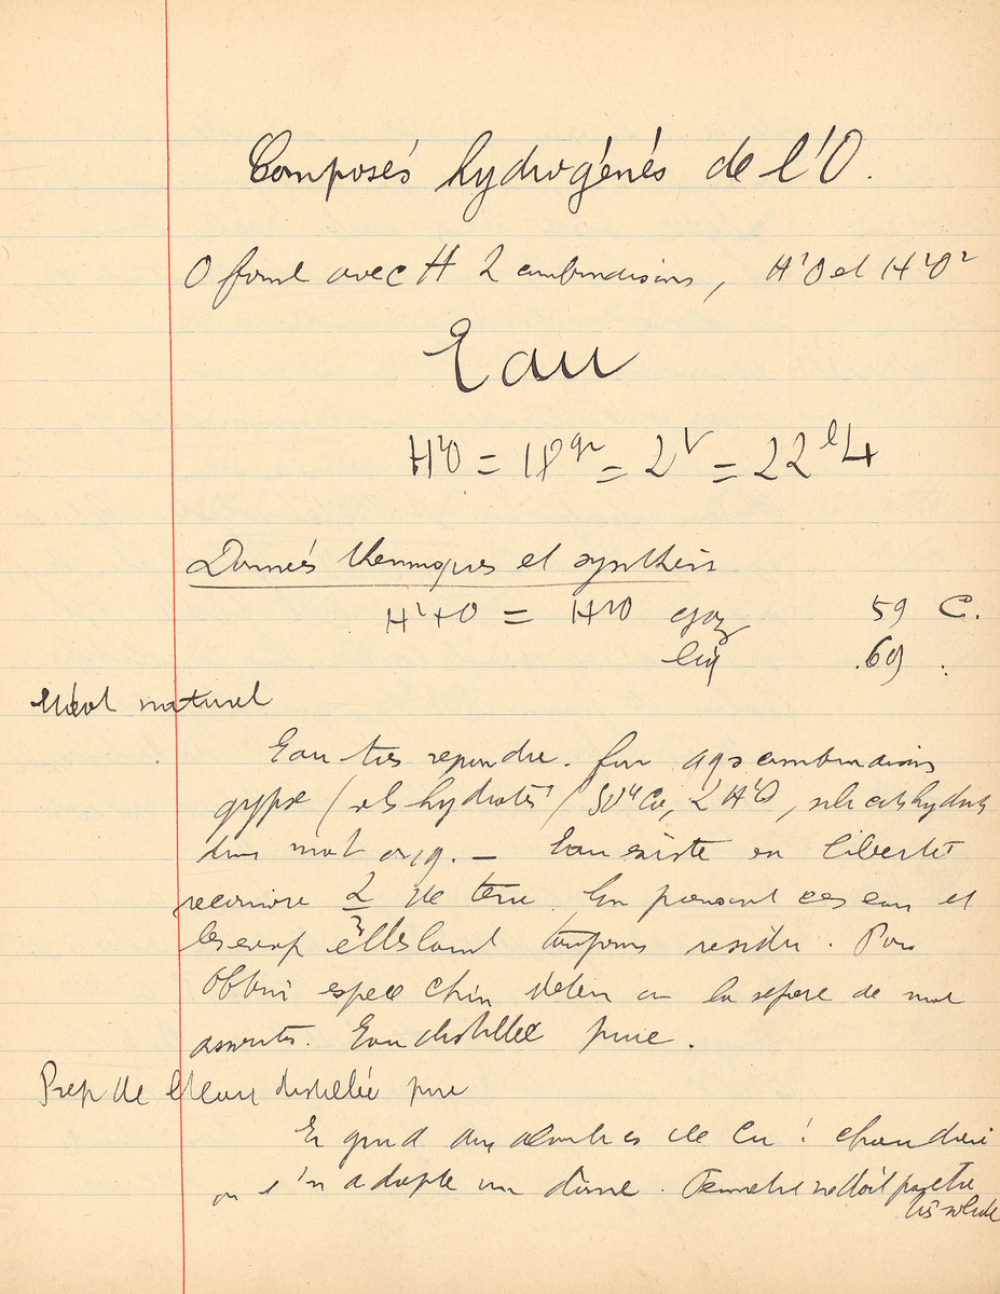 Composés hydrogénés de l'O.
O forme avec H 2 combinaisons, H²O et H²O²
Eau
H²O = 18gr = 2v = 22l4
Données thermiques et synthèse
H²+O = H²O gaz 59 C.
liq 69
naturel
Eau très répandue. combinaisons
gypse (sels hydratés) SO⁴Ca, 2H²O,
dans mat org. — Eau existe en liberté
recouvre 2/3 de terre. En prenant ces eaux et
les évap elles laissent toujours résidu. Pour
obtenir espèce chim de l'eau on la sépare de mat
Eau distillée pure.
Prép de l'eau distillée pure
En grand alambics de Cu : chaudière
on l'n adapte un dôme. ne doit pas être
très solide